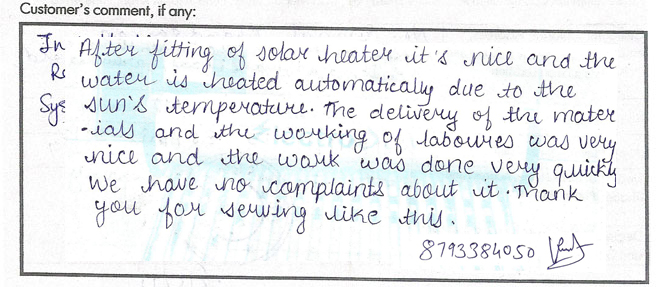 Customer's comment, if any:
In After fitting of solar heater it's nice and the
Rs water is heated automatically due to the
Sys sun's temperature. The delivery of the mater
-ials and the working of laboures was very
nice and the work was done very quickly
We have no complaints about it. Thank
you for serving like this.
8793384050